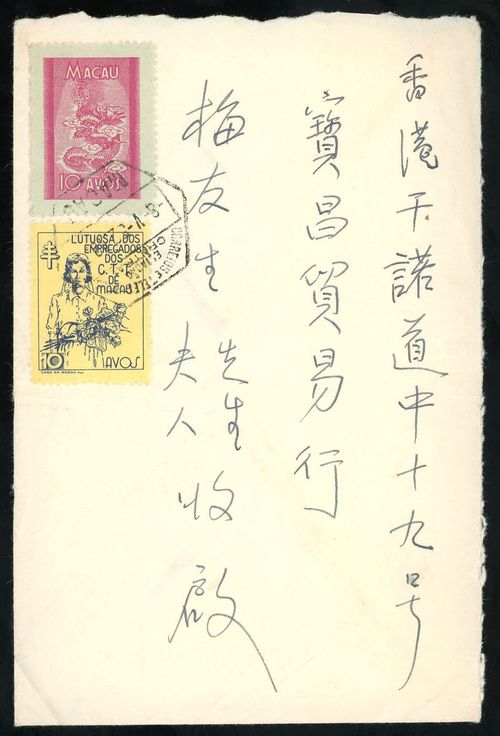 香港干諾道中十九号
寶昌貿易行
梅友生先生夫人收啟
MACAU
10 AVOS
LUTUOSA DOS
EMPREGADOS
DOS
C. T. T.
DE
MACAU
10 AVOS
CASA DA MOEDA